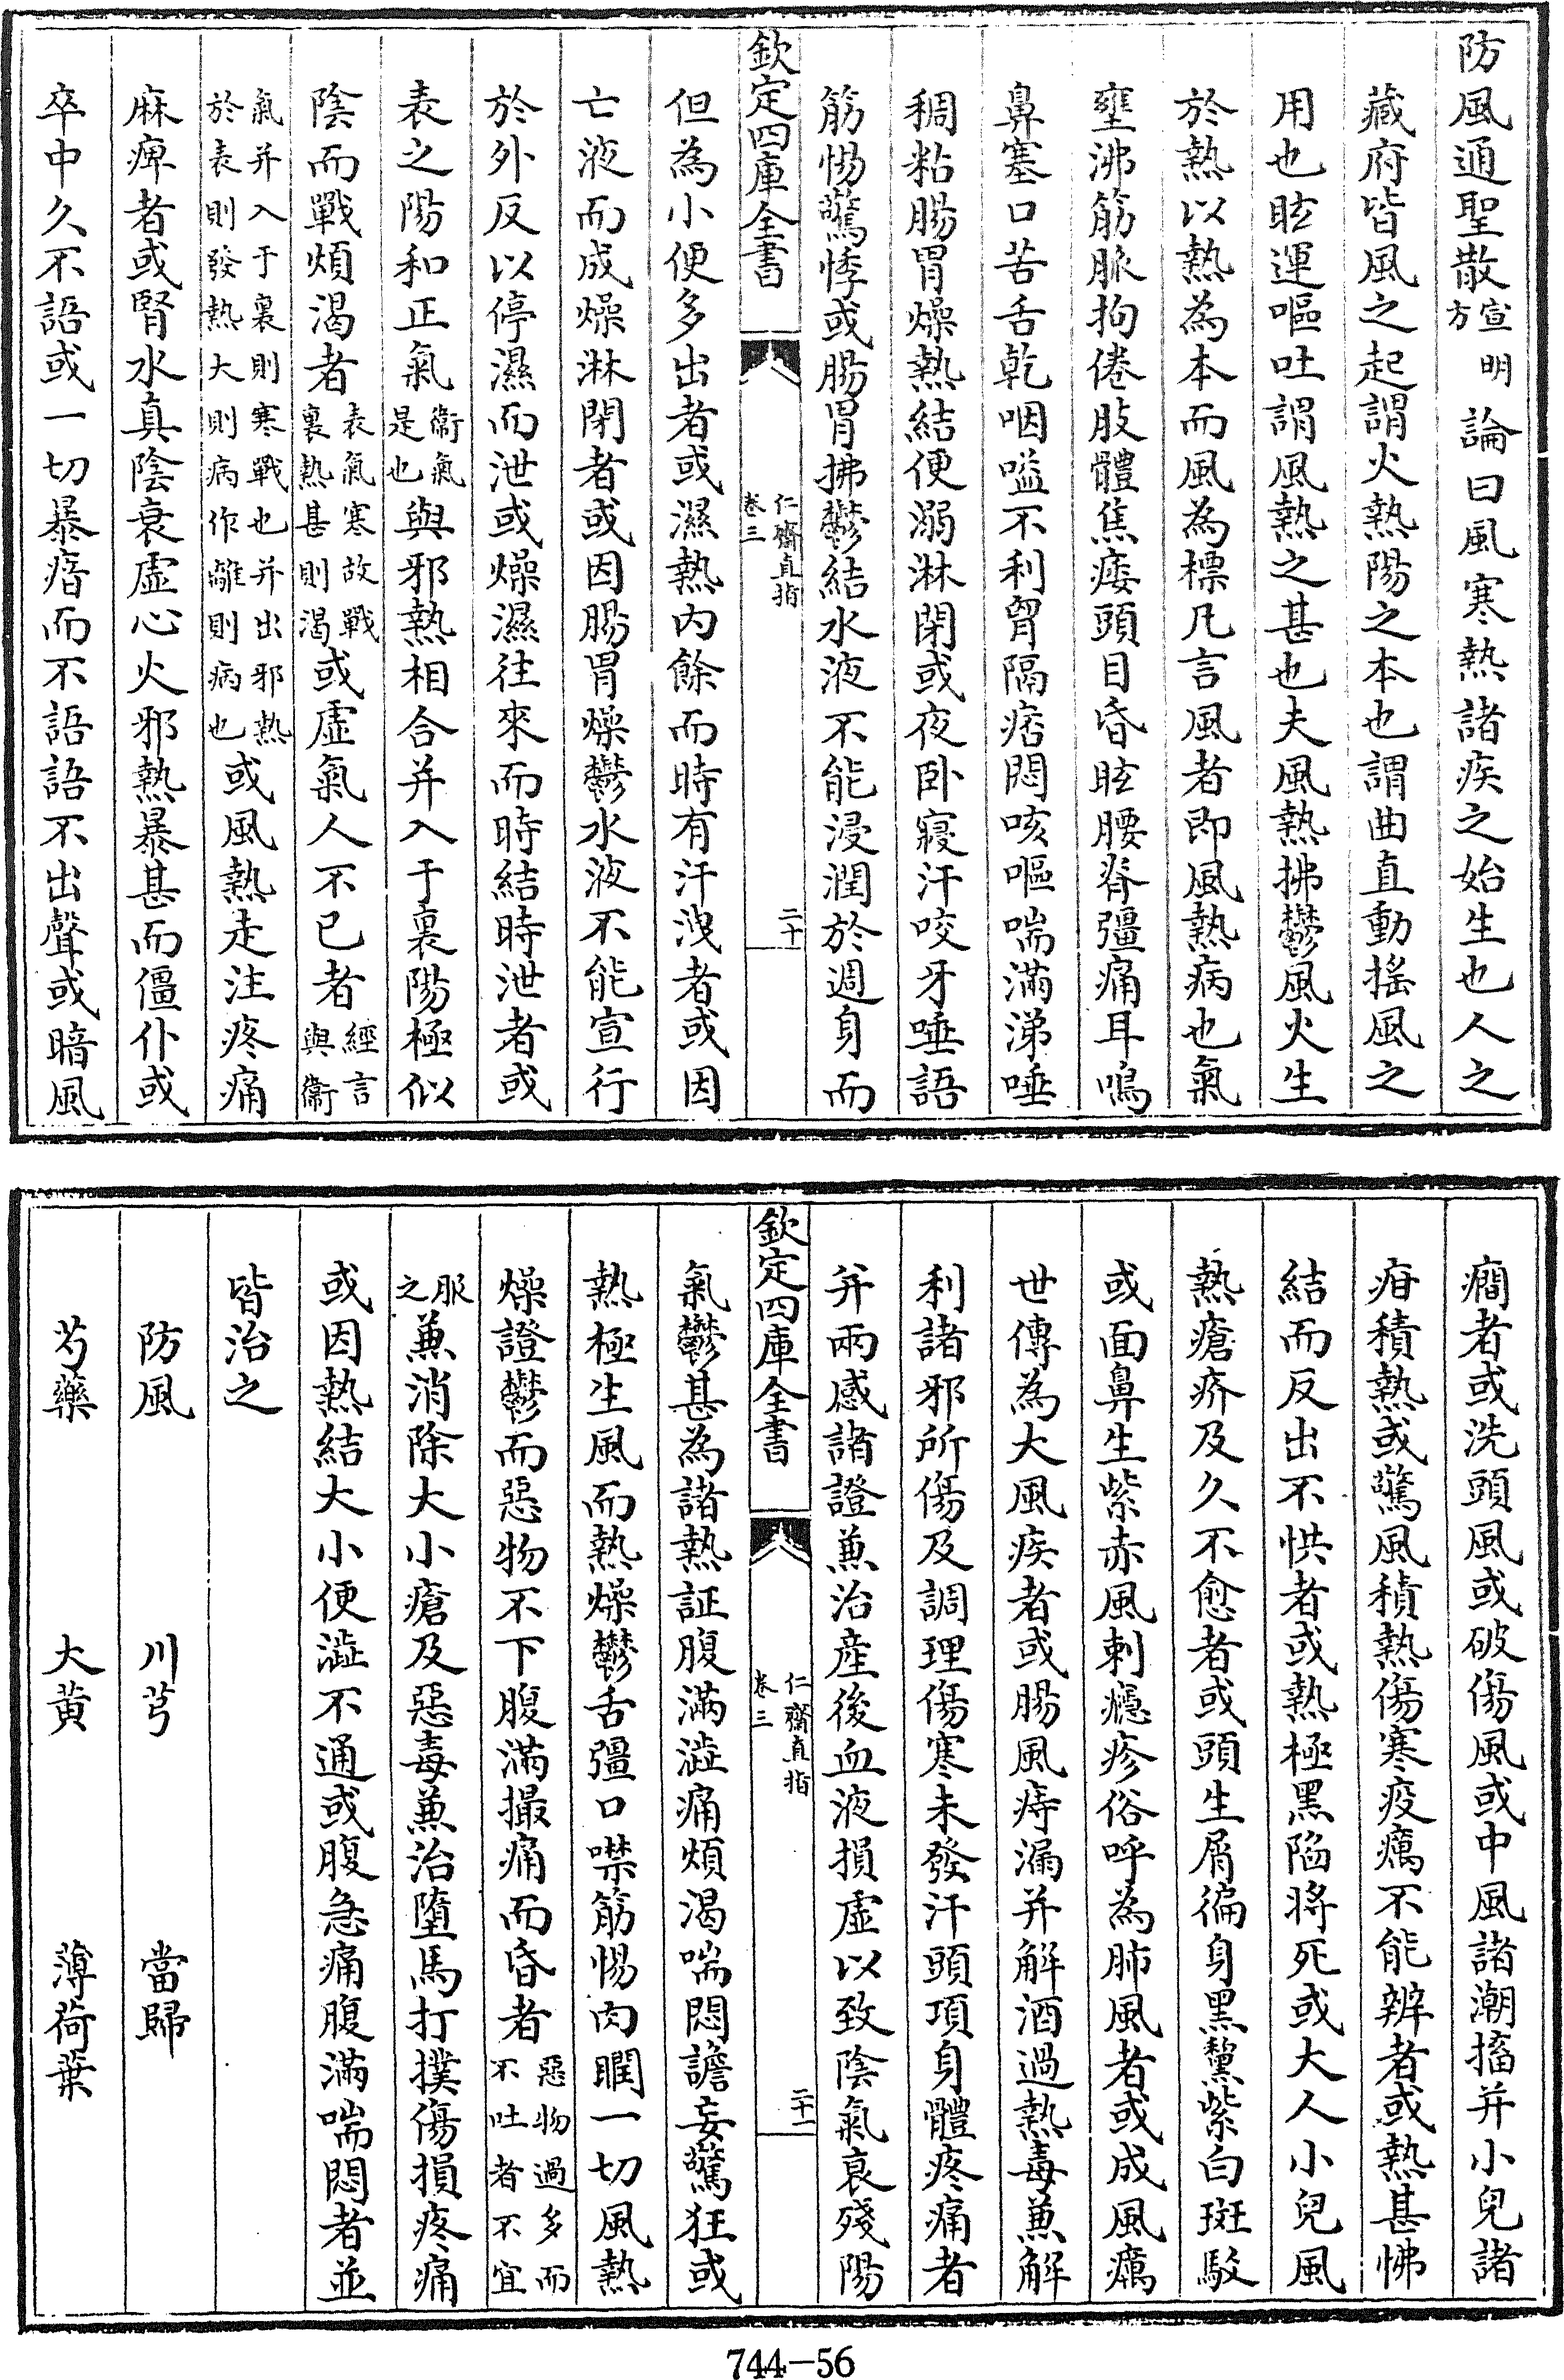 防風通聖散宣明方論曰風寒熱諸疾之始生也人之
藏府皆風之起謂火熱陽之本也謂曲直動搖風之
用也眩運嘔吐謂風熱之甚也夫風熱拂鬱風火生
於熱以熱為本而風為標凡言風者即風熱病也氣
壅沸筋脈拘倦肢體焦痿頭目昏眩腰脊彊痛耳鳴
鼻塞口苦舌乾咽嗌不利胷隔痞悶咳嘔喘滿涕唾
稠粘腸胃燥熱結便溺淋閉或夜卧寢汗咬牙唾語
筋惕驚悸或腸胃拂鬱結水液不能浸潤於週身而
欽定四庫全書
仁齋直指
卷三
二十
但為小便多出者或濕熱内餘而時有汗洩者或因
亡液而成燥淋閉者或因腸胃燥鬱水液不能宣行
於外反以停濕而泄或燥濕往來而時結時泄者或
表之陽和正氣衞氣是也與邪熱相合并入于裏陽極似
陰而戰煩渴者表氣寒故戰裏熱甚則渴或虛氣人不已者經言與衞
氣并入于裏則寒戰也并出邪熱於表則發熱大則病作離則病也或風熱走注疼痛
麻痺者或腎水真陰衰虛心火邪熱暴甚而僵仆或
卒中久不語或一切暴瘖而不語語不出聲或暗風
癇者或洗頭風或破傷風或中風諸潮搐并小兒諸
疳積熱或驚風積熱傷寒疫癘不能辨者或熱甚怫
結而反出不快者或熱極黑陷將死或大人小兒風
熱瘡疥及久不愈者或頭生屑徧身黑黧紫白斑駁
或面鼻生紫赤風刺癮疹俗呼為肺風者或成風癘
世傳為大風疾者或腸風痔漏并解酒過熱毒兼解
利諸邪所傷及調理傷寒未發汗頭項身體疼痛者
并兩感諸證兼治産後血液損虛以致陰氣衰殘陽
欽定四庫全書
仁齋直指
卷三
二十一
氣鬱甚為諸熱証腹滿澁痛煩渴喘悶譫妄驚狂或
熱極生風而熱燥鬱舌彊口噤筋惕肉瞤一切風熱
燥證鬱而惡物不下腹滿撮痛而昏者惡物過多而不吐者不宜
服之兼消除大小瘡及惡毒兼治墮馬打撲傷損疼痛
或因熱結大小便澁不通或腹急痛腹滿喘悶者並
皆治之
防風 川芎 當歸
芍藥 大黄 薄荷葉
744-56